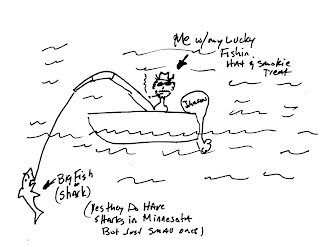 Me w/my Lucky
Fishin
Hat & Smokie
Treat
Johnson
Big Fish
(Shark)
(Yes they Do Have
Sharks in Minnesota
But Just Small ones)